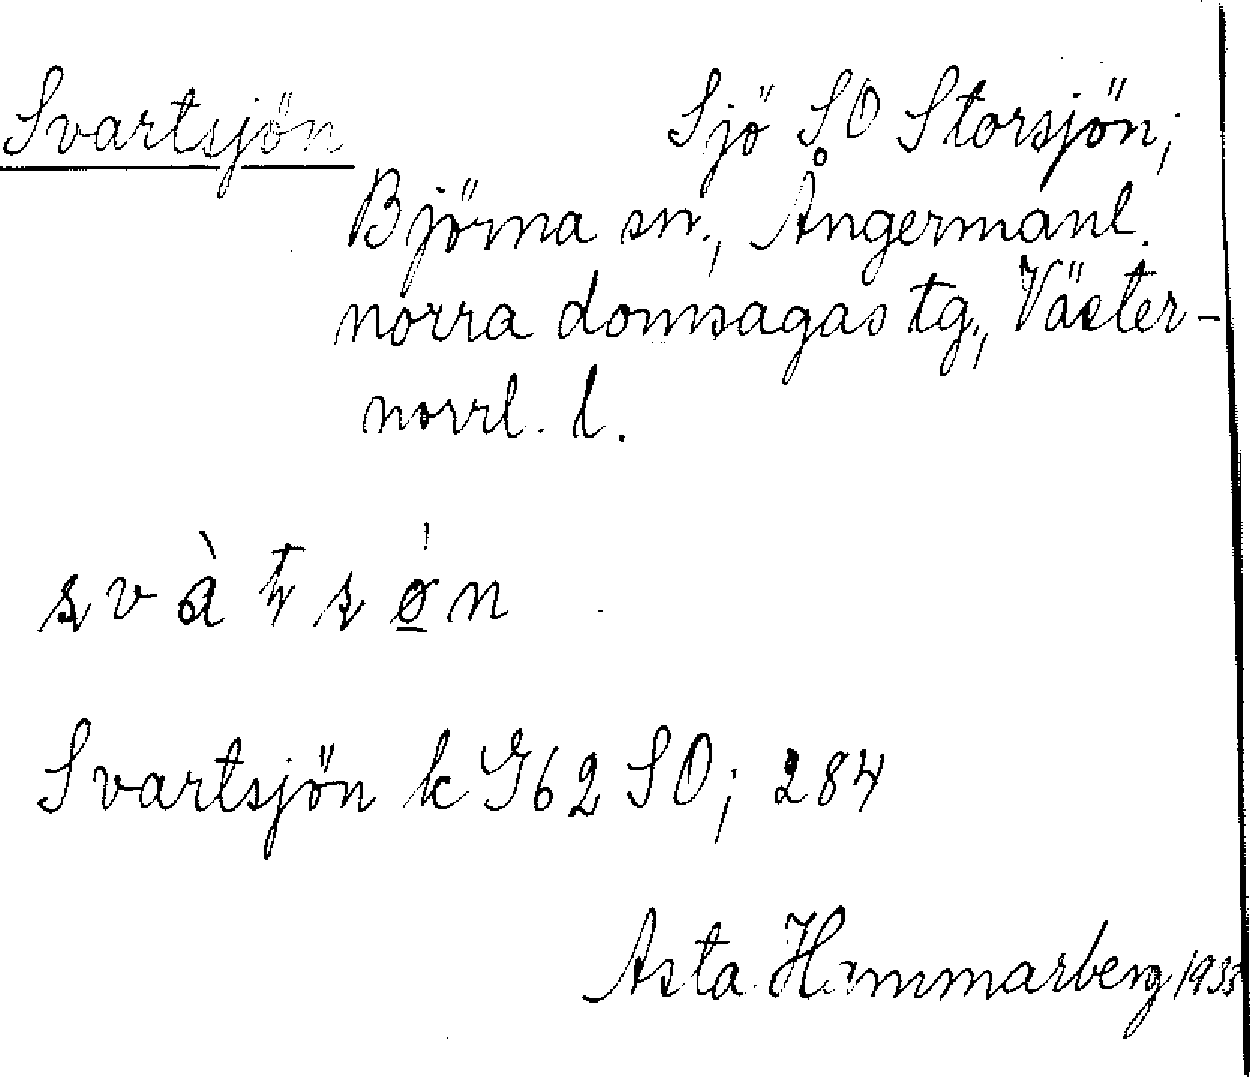 Svartsjön Sjö SO Storsjön;
Björna sn., Ångermanl.
norra domsagas tg., Väster-
norrl. l.
Svartsjön k G62 SO; 284
Asta Hammarberg